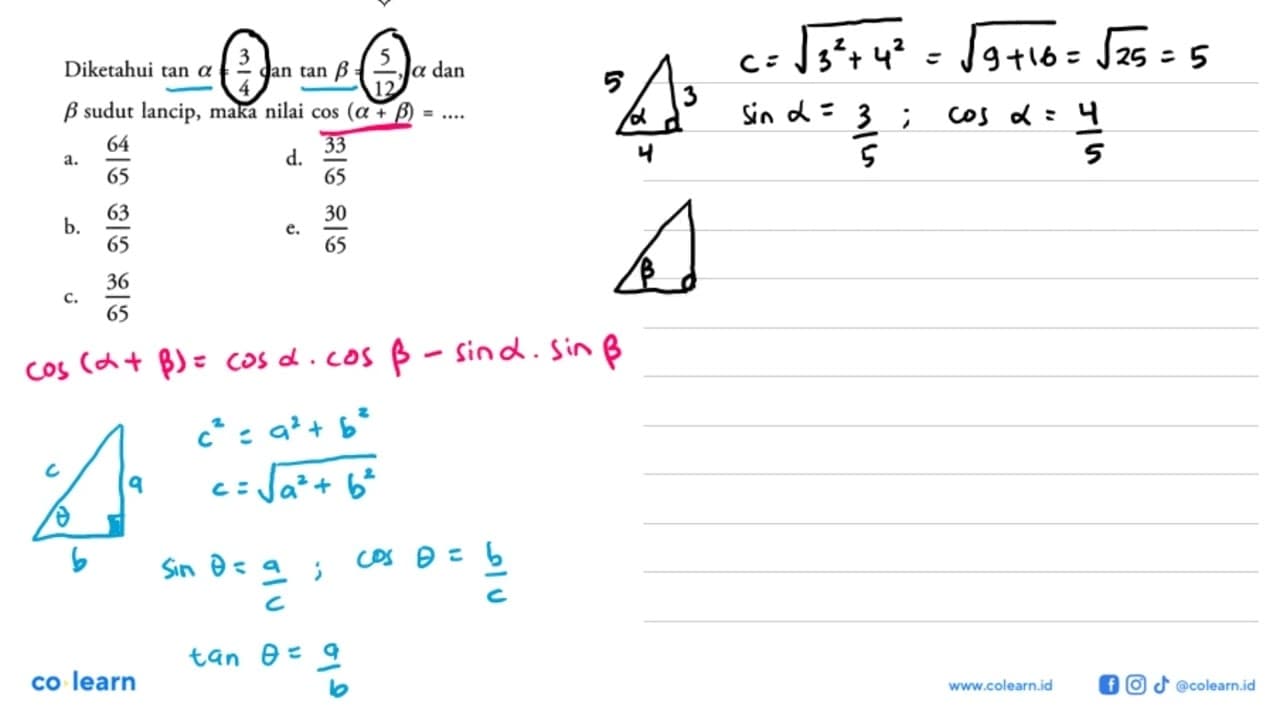 Diketahui tan α = 3/4 dan tan β = 5/12, α dan
β sudut lancip, maka nilai cos (α + β) = ....
a. 64/65
d. 33/65
b. 63/65
e. 30/65
c. 36/65
cos (α + β) = cos α . cos β − sin α . sin β
c a θ b
c² = a² + b²
c = √(a² + b²)
sin θ = a/c ; cos θ = b/c
tan θ = a/b
5 3 α 4
c = √(3² + 4²) = √(9 + 16) = √25 = 5
sin α = 3/5 ; cos α = 4/5
β
co learn
www.colearn.id
@colearn.id